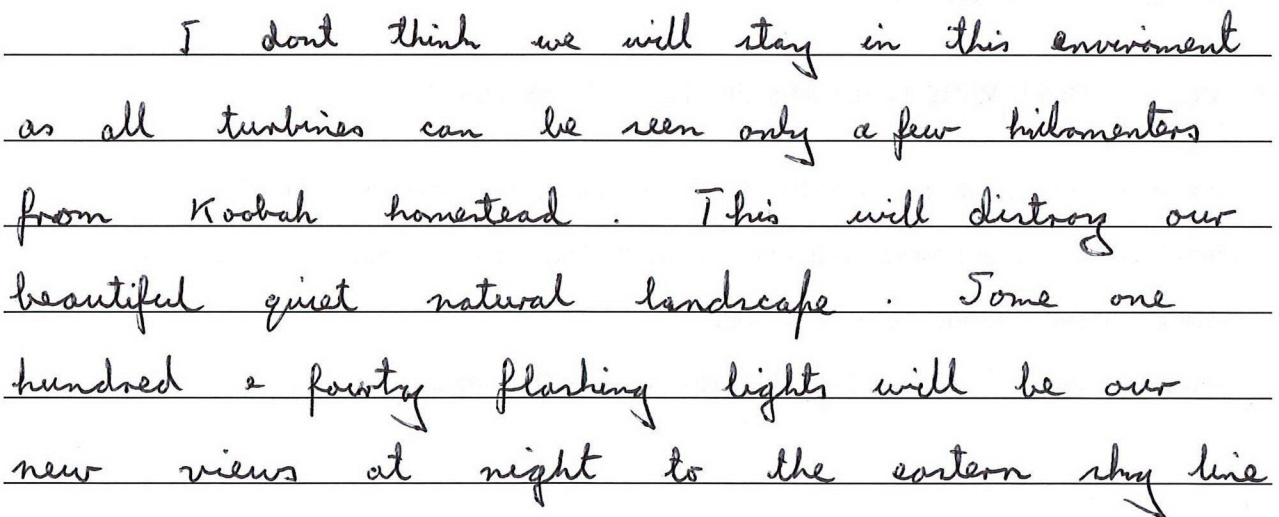 I dont think we will stay in this enviroment
as all turbines can be seen only a few kilomenters
from Koobah homestead . This will distroy our
beautiful quiet natural landscape . Some one
hundred & fourty flashing lights will be our
new views at night to the eastern sky line